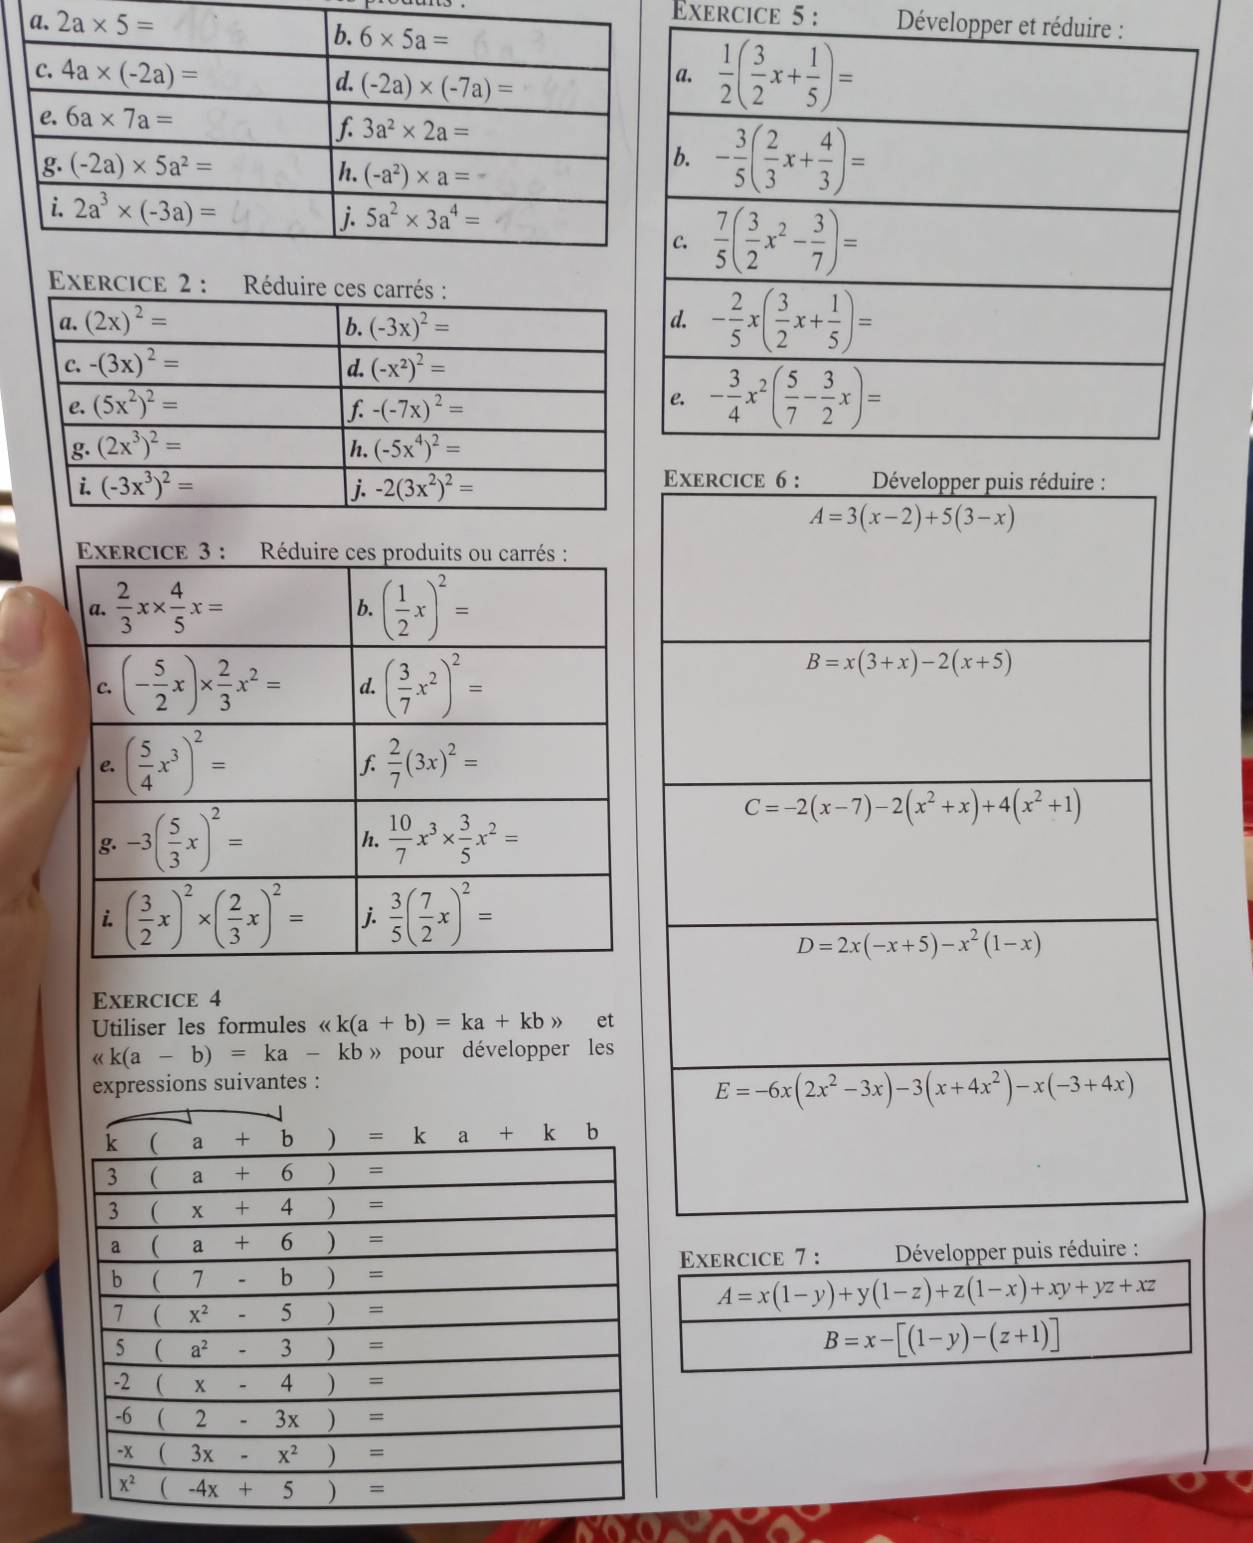 a. 2a × 5 =
b. 6 × 5a =
c. 4a × (-2a) =
d. (-2a) × (-7a) =
e. 6a × 7a =
f. 3a² × 2a =
g. (-2a) × 5a² =
h. (-a²) × a =
i. 2a³ × (-3a) =
j. 5a² × 3a⁴ =
EXERCICE 2 : Réduire ces carrés :
a. (2x)² =
b. (-3x)² =
c. -(3x)² =
d. (-x²)² =
e. (5x²)² =
f. -(-7x)² =
g. (2x³)² =
h. (-5x⁴)² =
i. (-3x³)² =
j. -2(3x²)² =
EXERCICE 3 : Réduire ces produits ou carrés :
a. 2/3 x × 4/5 x =
b. (1/2 x)² =
c. (-5/2 x) × 2/3 x² =
d. (3/7 x²)² =
e. (5/4 x³)² =
f. 2/7 (3x)² =
g. -3(5/3 x)² =
h. 10/7 x³ × 3/5 x² =
i. (3/2 x)² × (2/3 x)² =
j. 3/5 (7/2 x)² =
EXERCICE 4
Utiliser les formules « k(a + b) = ka + kb » et
« k(a - b) = ka - kb » pour développer les
expressions suivantes :
k ( a + b ) = k a + k b
3 ( a + 6 ) =
3 ( x + 4 ) =
a ( a + 6 ) =
b ( 7 - b ) =
7 ( x² - 5 ) =
5 ( a² - 3 ) =
-2 ( x - 4 ) =
-6 ( 2 - 3x ) =
-x ( 3x - x² ) =
x² ( -4x + 5 ) =
EXERCICE 5 : Développer et réduire :
a. 1/2 (3/2 x + 1/5) =
b. -3/5 (2/3 x + 4/3) =
c. 7/5 (3/2 x² - 3/7) =
d. -2/5 x (3/2 x + 1/5) =
e. -3/4 x² (5/7 - 3/2 x) =
EXERCICE 6 : Développer puis réduire :
A = 3(x - 2) + 5(3 - x)
B = x(3 + x) - 2(x + 5)
C = -2(x - 7) - 2(x² + x) + 4(x² + 1)
D = 2x(-x + 5) - x²(1 - x)
E = -6x(2x² - 3x) - 3(x + 4x²) - x(-3 + 4x)
EXERCICE 7 : Développer puis réduire :
A = x(1 - y) + y(1 - z) + z(1 - x) + xy + yz + xz
B = x - [(1 - y) - (z + 1)]